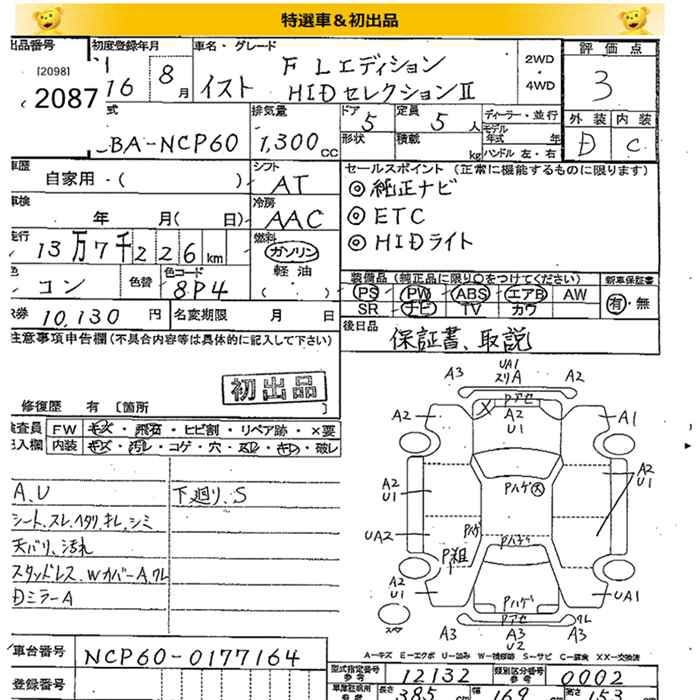 特選車＆初出品
出品番号 初度登録年月 車名・グレード 2WD・4WD 評価点
[2098]
2087
16 8月 イスト F Lエディション HIDセレクションII 3
排気量 ドア 定員 ディーラー・並行 外装 内装
BA-NCP60 1,300cc 5 5人 モデル年式 年 D C
形状 積載 kg ハンドル 左・右
車歴 シフト セールスポイント(正常に機能するものに限ります)
自家用・( ) AT ◎純正ナビ
車検 冷房 ◎ETC
年 月( 日) AAC ◎HIDライト
走行 燃料
13万7千226km ガソリン
軽油
( )
色 色替 色コード 装備品(純正品に限り○をつけてください) 新車保証書
コン 8P4 PS PW ABS エアB AW 有・無
SR ナビ TV カワ
券 10,130円 名変期限 月 日 後日品
保証書、取説
注意事項申告欄(不具合内容等は具体的に記入して下さい)
初出品
修復歴 有 [箇所 ]
検査員 FW キズ・飛石・ヒビ割・リペア跡・×要
記入欄 内装 キズ・汚レ・コゲ・穴・スレ・キレ・破レ
A、U 下廻り、S
シート、スレ、ヘタリ、キレ、シミ
天バリ、汚れ
スタッドレス、WカバーA、ワレ
DミラーA
A3 UA1 スリA A2
Pアセ
A2 A2 U1 A1
A2 U1 Pハゲ大 A2 U1
UA2 Pハゲ Pハゲ
P粗
A2 U1 Pハゲ UA1
Pアセ ワレ
スペア A3 A3 U2 A3 A3
A－キズ E－エクボ U－凹み W－補修跡 S－サビ C－腐食 XX－交換済
車台番号 NCP60-0177164
型式指定番号 参考 12132 類別区分番号 参考 0002
登録番号
長さ 385 cm 幅 169